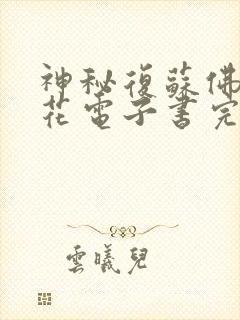 神秘復蘇佛
花電子書完
雲曦兒